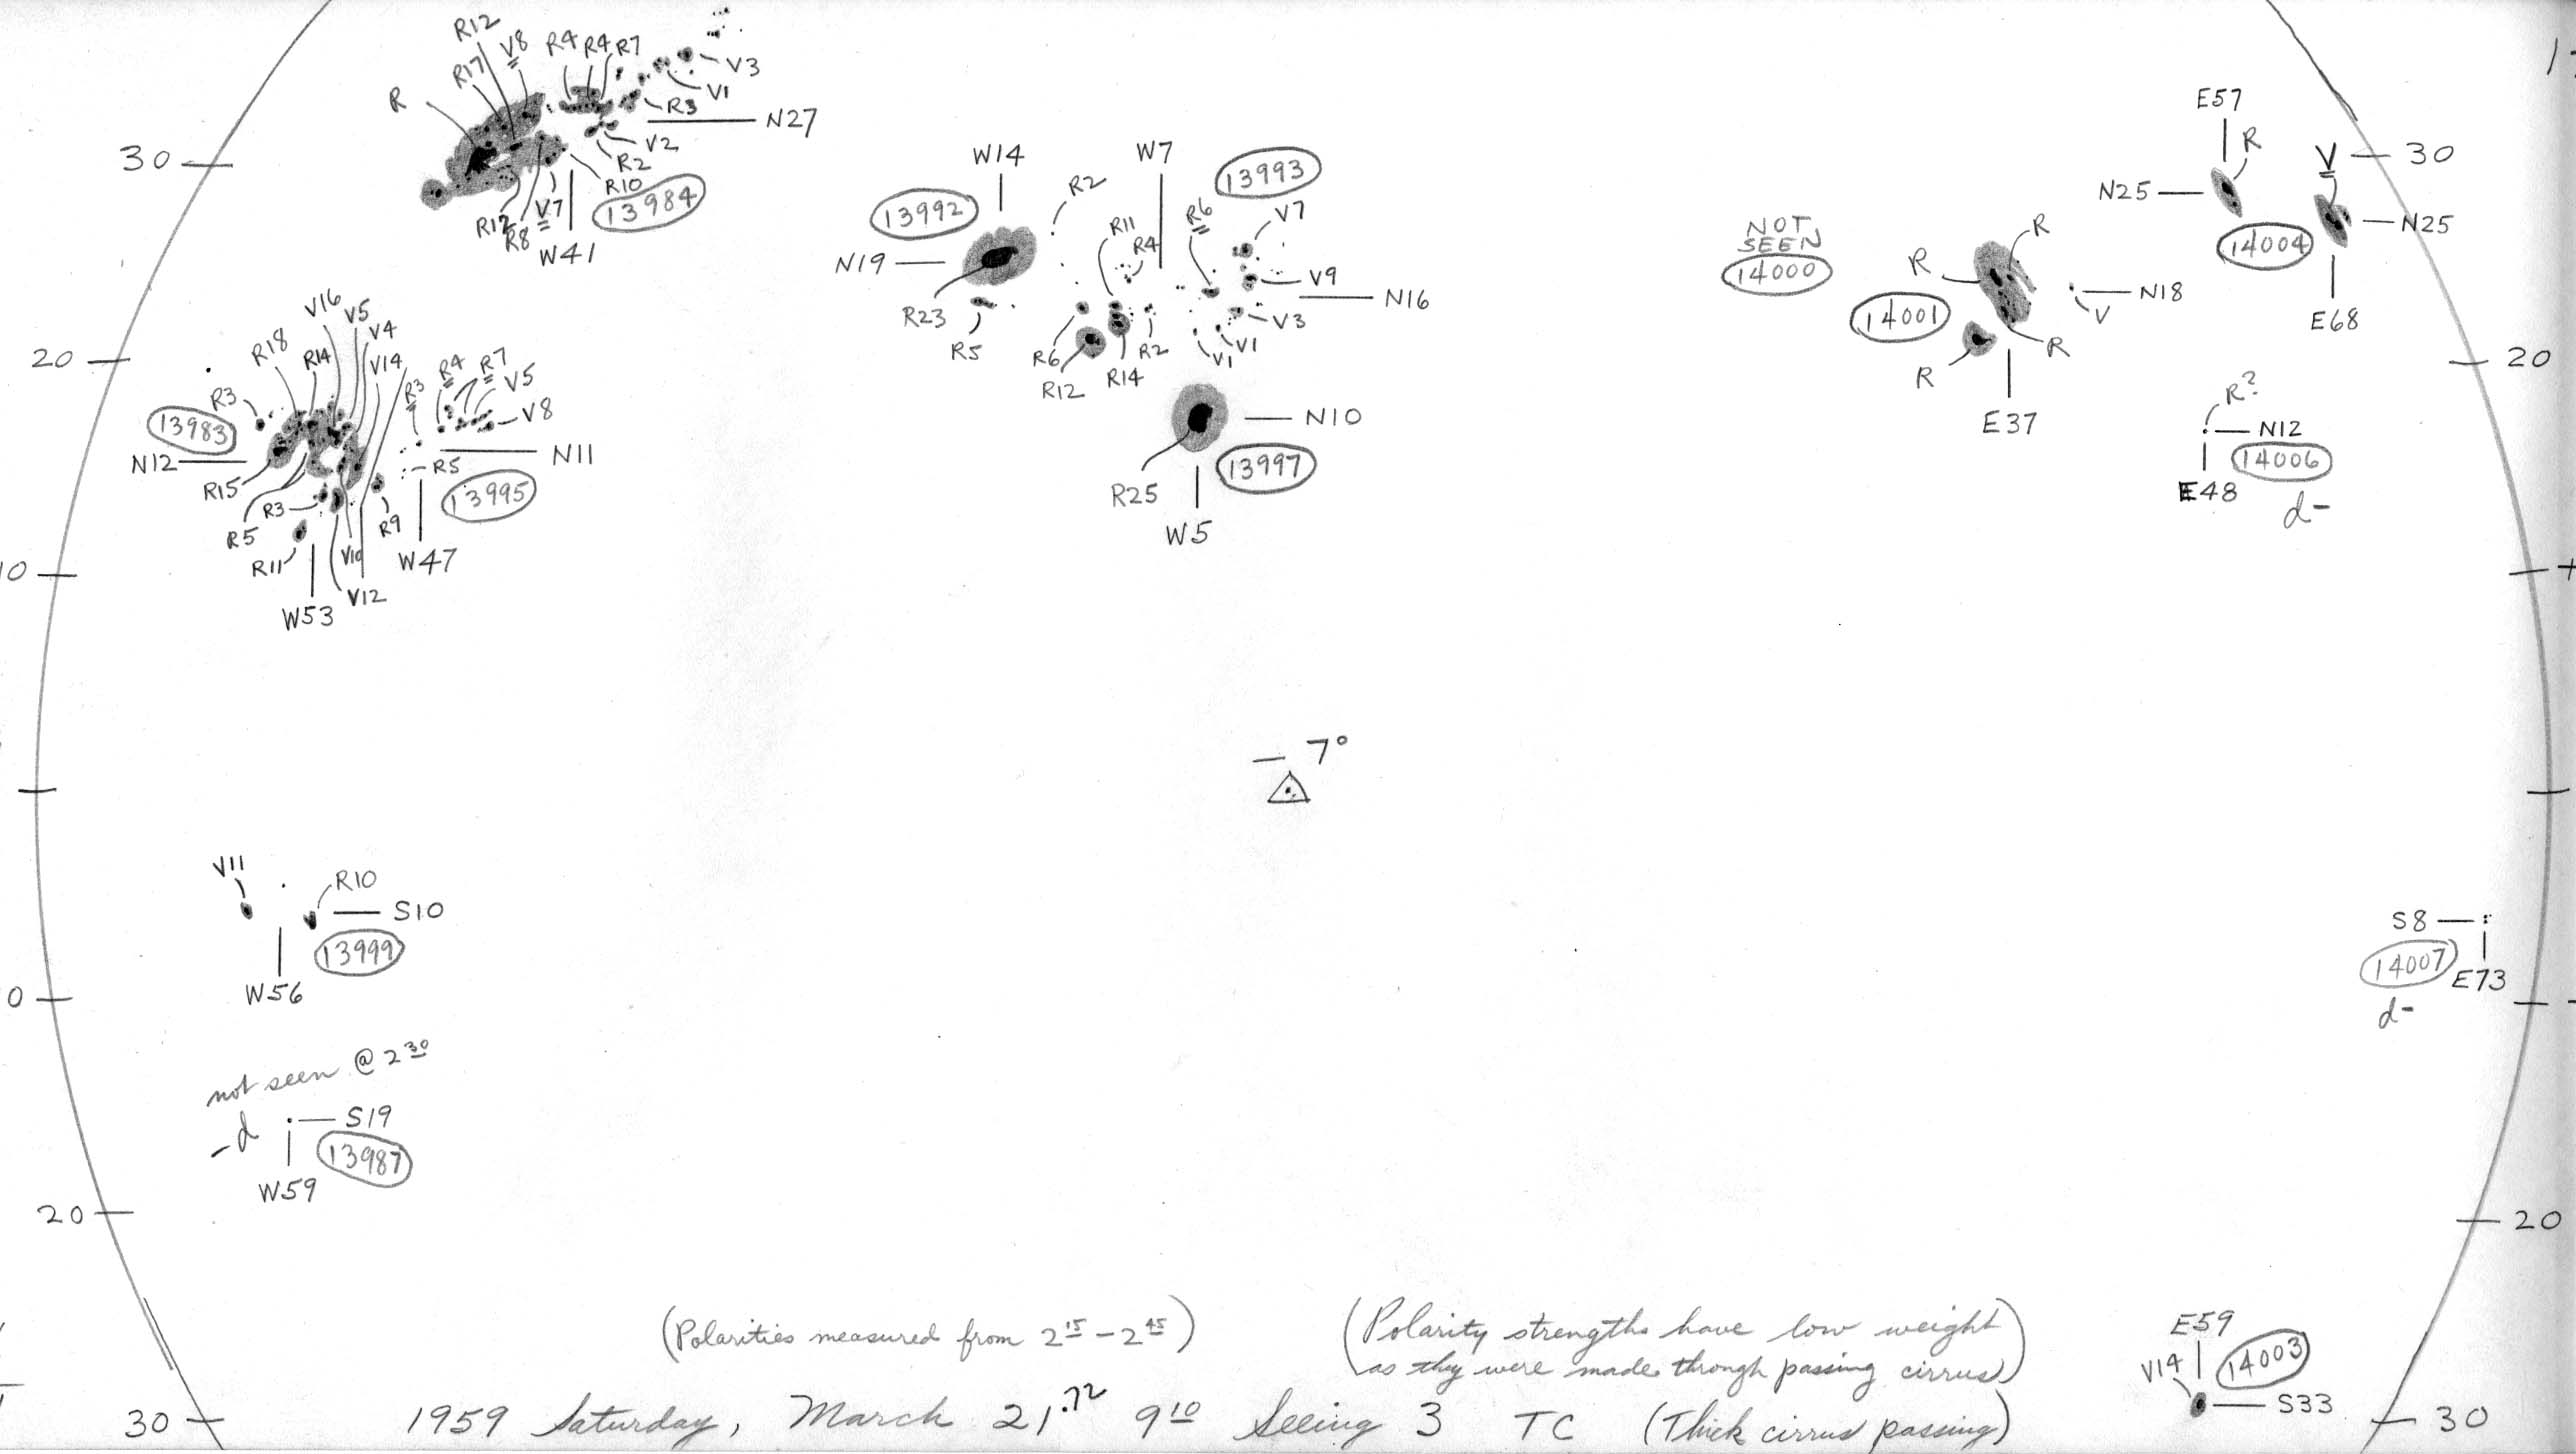 R12
V8
R4
R4
R7
R17
R
V3
V1
R3
N27
V2
R2
R10
V7
R8
R12
W41
13984
30
W14
W7
13993
R2
13992
R6
V7
R11
R4
N19
V9
N16
R23
V3
R5
R6
R2
V1
V1
R12
R14
N10
13997
R25
W5
E57
R
V
30
N25
N25
14004
E68
NOT
SEEN
14000
R
R
14001
N18
V
R
R
E37
20
R?
N12
14006
E48
d-
20
V16
V5
V4
V14
R18
R14
R3
R4
R7
V5
V8
R3
13983
N12
N11
R5
R15
13995
R3
R9
R5
R11
V10
W47
V12
W53
10
- 7°
V11
R10
S10
13999
W56
S8
14007
E73
d-
not seen @ 2 30
-d
S19
13987
W59
20
20
(Polarities measured from 2 15 - 2 45)
(Polarity strengths have low weight
as they were made through passing cirrus)
E59
V14
14003
S33
30
1959 Saturday, March 21.72 9 10 Seeing 3 TC (Thick cirrus passing)
30